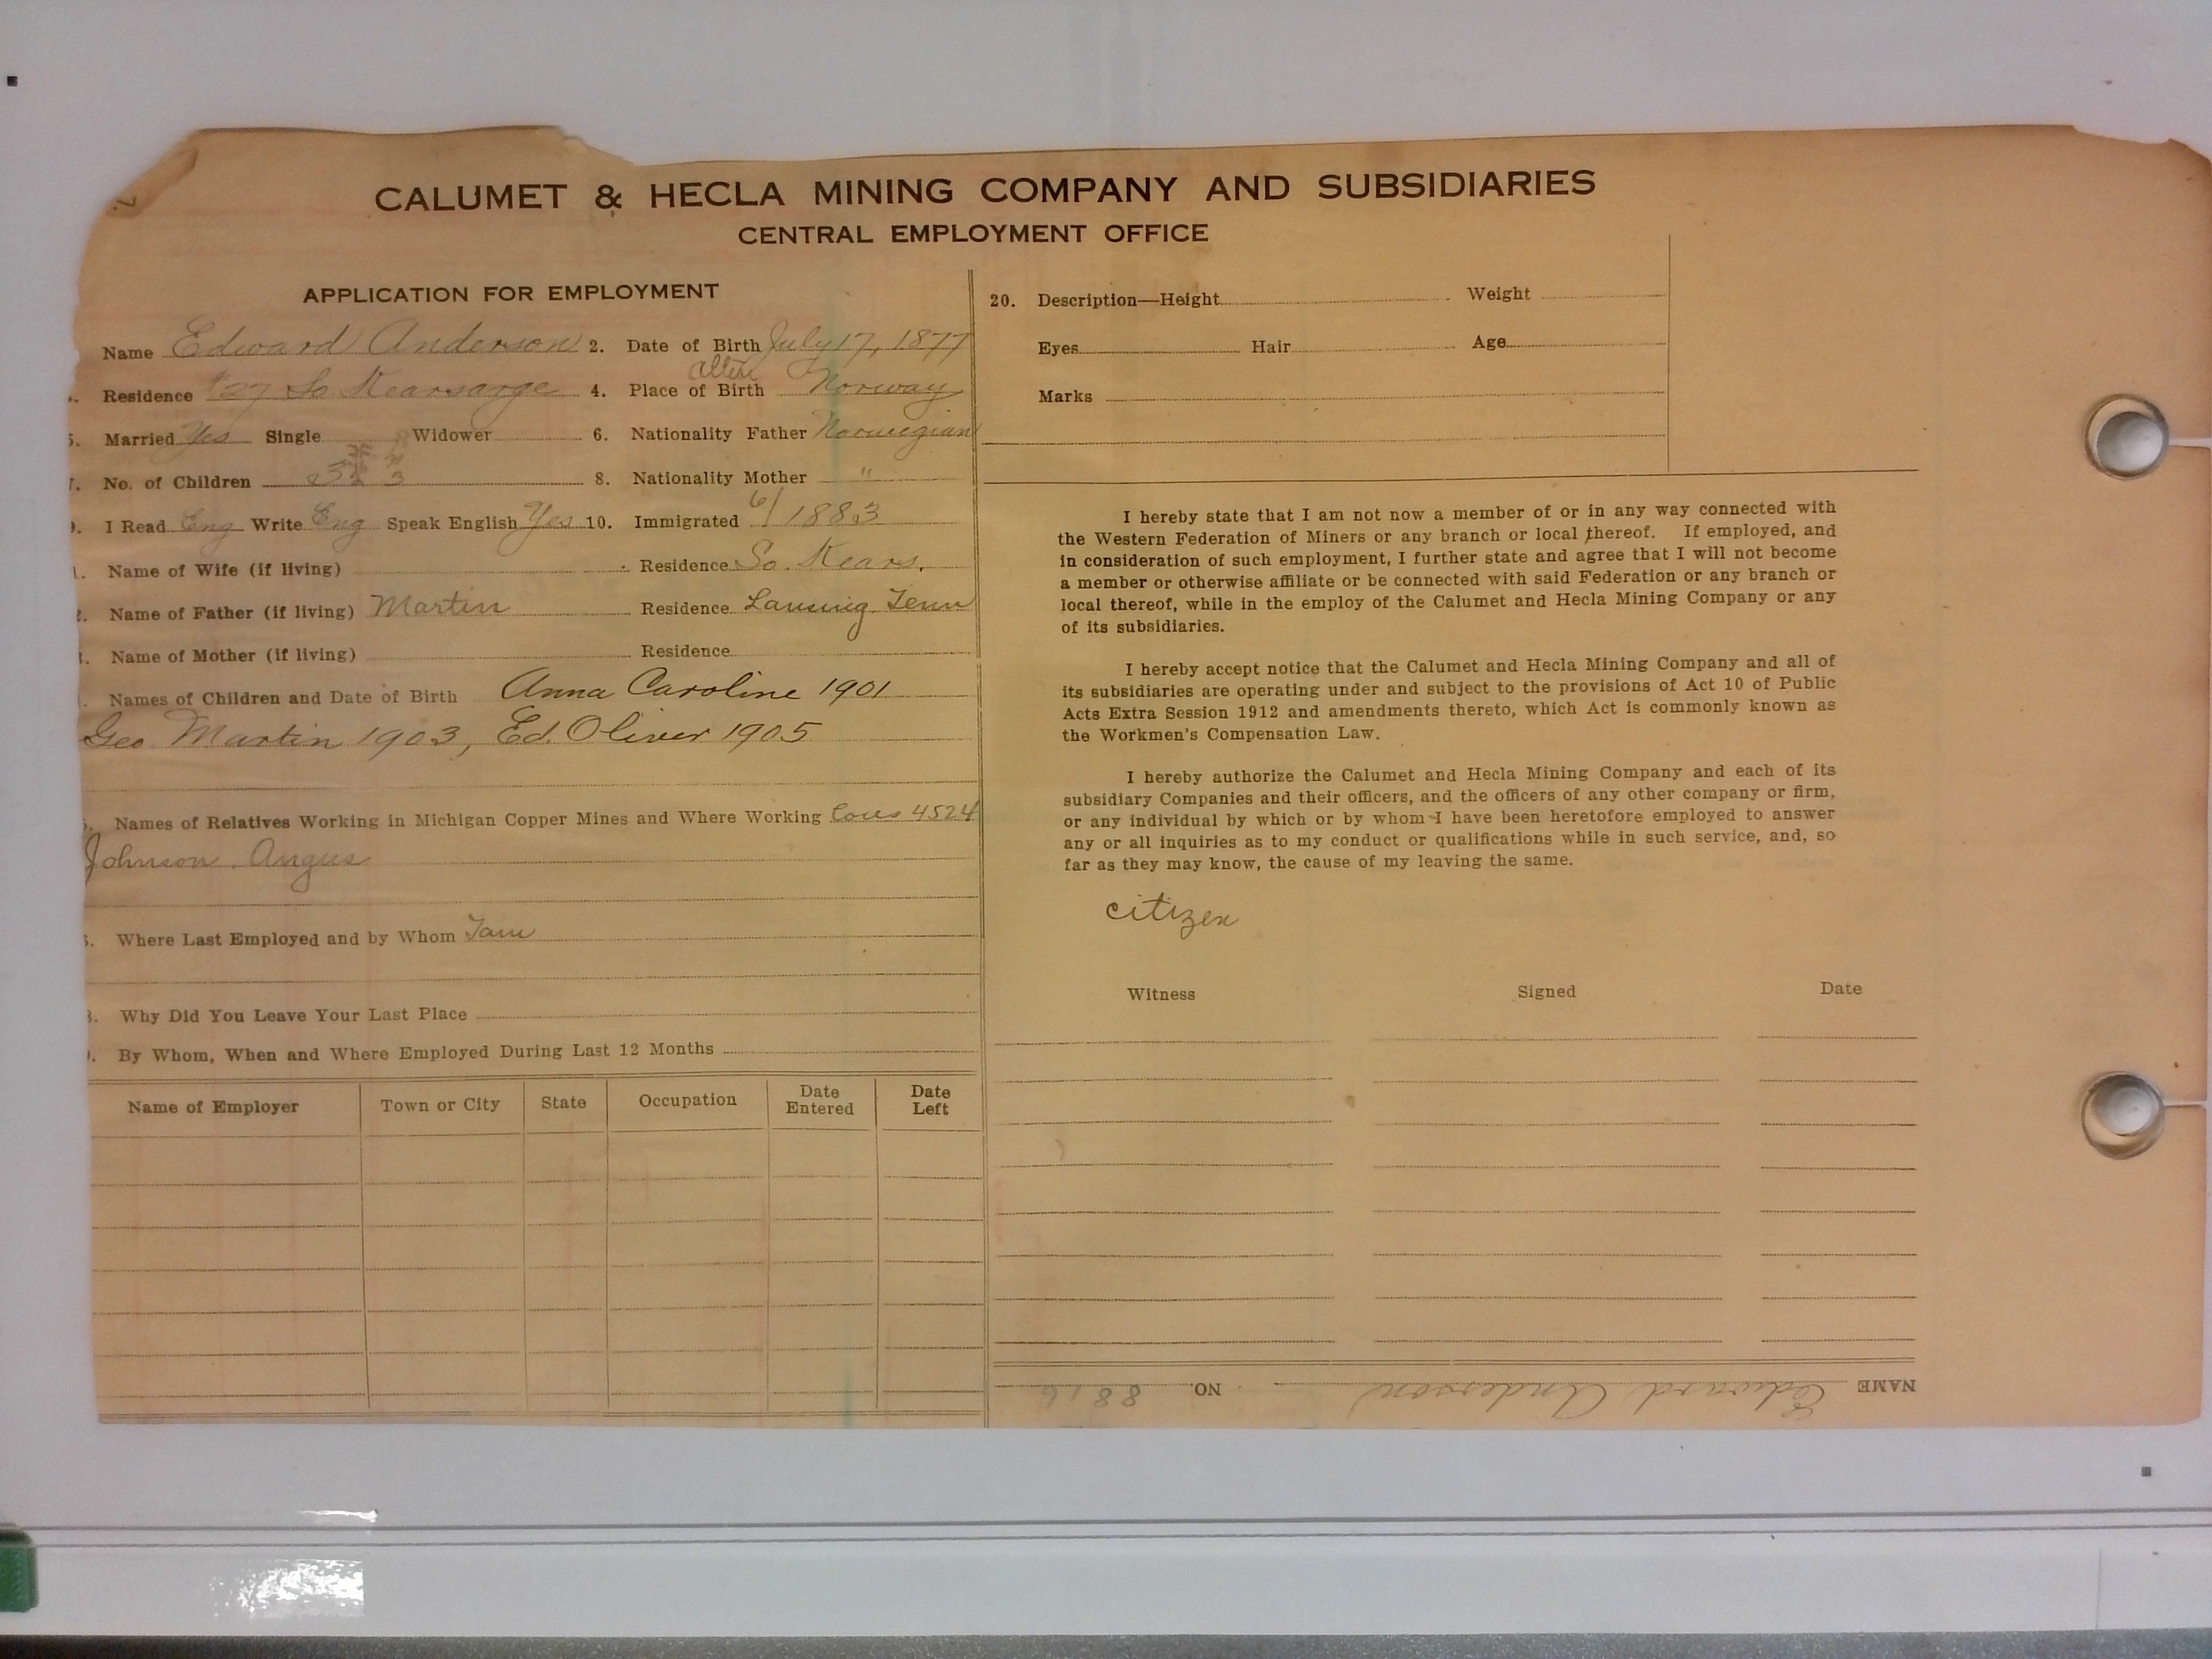 CALUMET & HECLA MINING COMPANY AND SUBSIDIARIES
CENTRAL EMPLOYMENT OFFICE
APPLICATION FOR EMPLOYMENT
Name Edward Anderson 2. Date of Birth July 17, 1877
Residence #27 So Kearsarge 4. Place of Birth Norway
5. Married Yes Single Widower 6. Nationality Father Norwegian
7. No. of Children 3 8. Nationality Mother "
9. I Read Eng Write Eng Speak English Yes 10. Immigrated 6/1883
1. Name of Wife (if living) Residence So. Kears.
2. Name of Father (if living) Martin Residence Lansing Tenn
3. Name of Mother (if living) Residence
Names of Children and Date of Birth Anna Caroline 1901
Geo. Martin 1903, Ed. Oliver 1905
5. Names of Relatives Working in Michigan Copper Mines and Where Working 4524
Johnson. Angus
6. Where Last Employed and by Whom Tam
8. Why Did You Leave Your Last Place
9. By Whom, When and Where Employed During Last 12 Months
Name of Employer Town or City State Occupation Date Entered Date Left
20. Description—Height Weight
Eyes Hair Age
Marks
I hereby state that I am not now a member of or in any way connected with
the Western Federation of Miners or any branch or local thereof. If employed, and
in consideration of such employment, I further state and agree that I will not become
a member or otherwise affiliate or be connected with said Federation or any branch or
local thereof, while in the employ of the Calumet and Hecla Mining Company or any
of its subsidiaries.
I hereby accept notice that the Calumet and Hecla Mining Company and all of
its subsidiaries are operating under and subject to the provisions of Act 10 of Public
Acts Extra Session 1912 and amendments thereto, which Act is commonly known as
the Workmen's Compensation Law.
I hereby authorize the Calumet and Hecla Mining Company and each of its
subsidiary Companies and their officers, and the officers of any other company or firm,
or any individual by which or by whom I have been heretofore employed to answer
any or all inquiries as to my conduct or qualifications while in such service, and, so
far as they may know, the cause of my leaving the same.
citizen
Witness Signed Date
NAME Edward Anderson NO. 8816